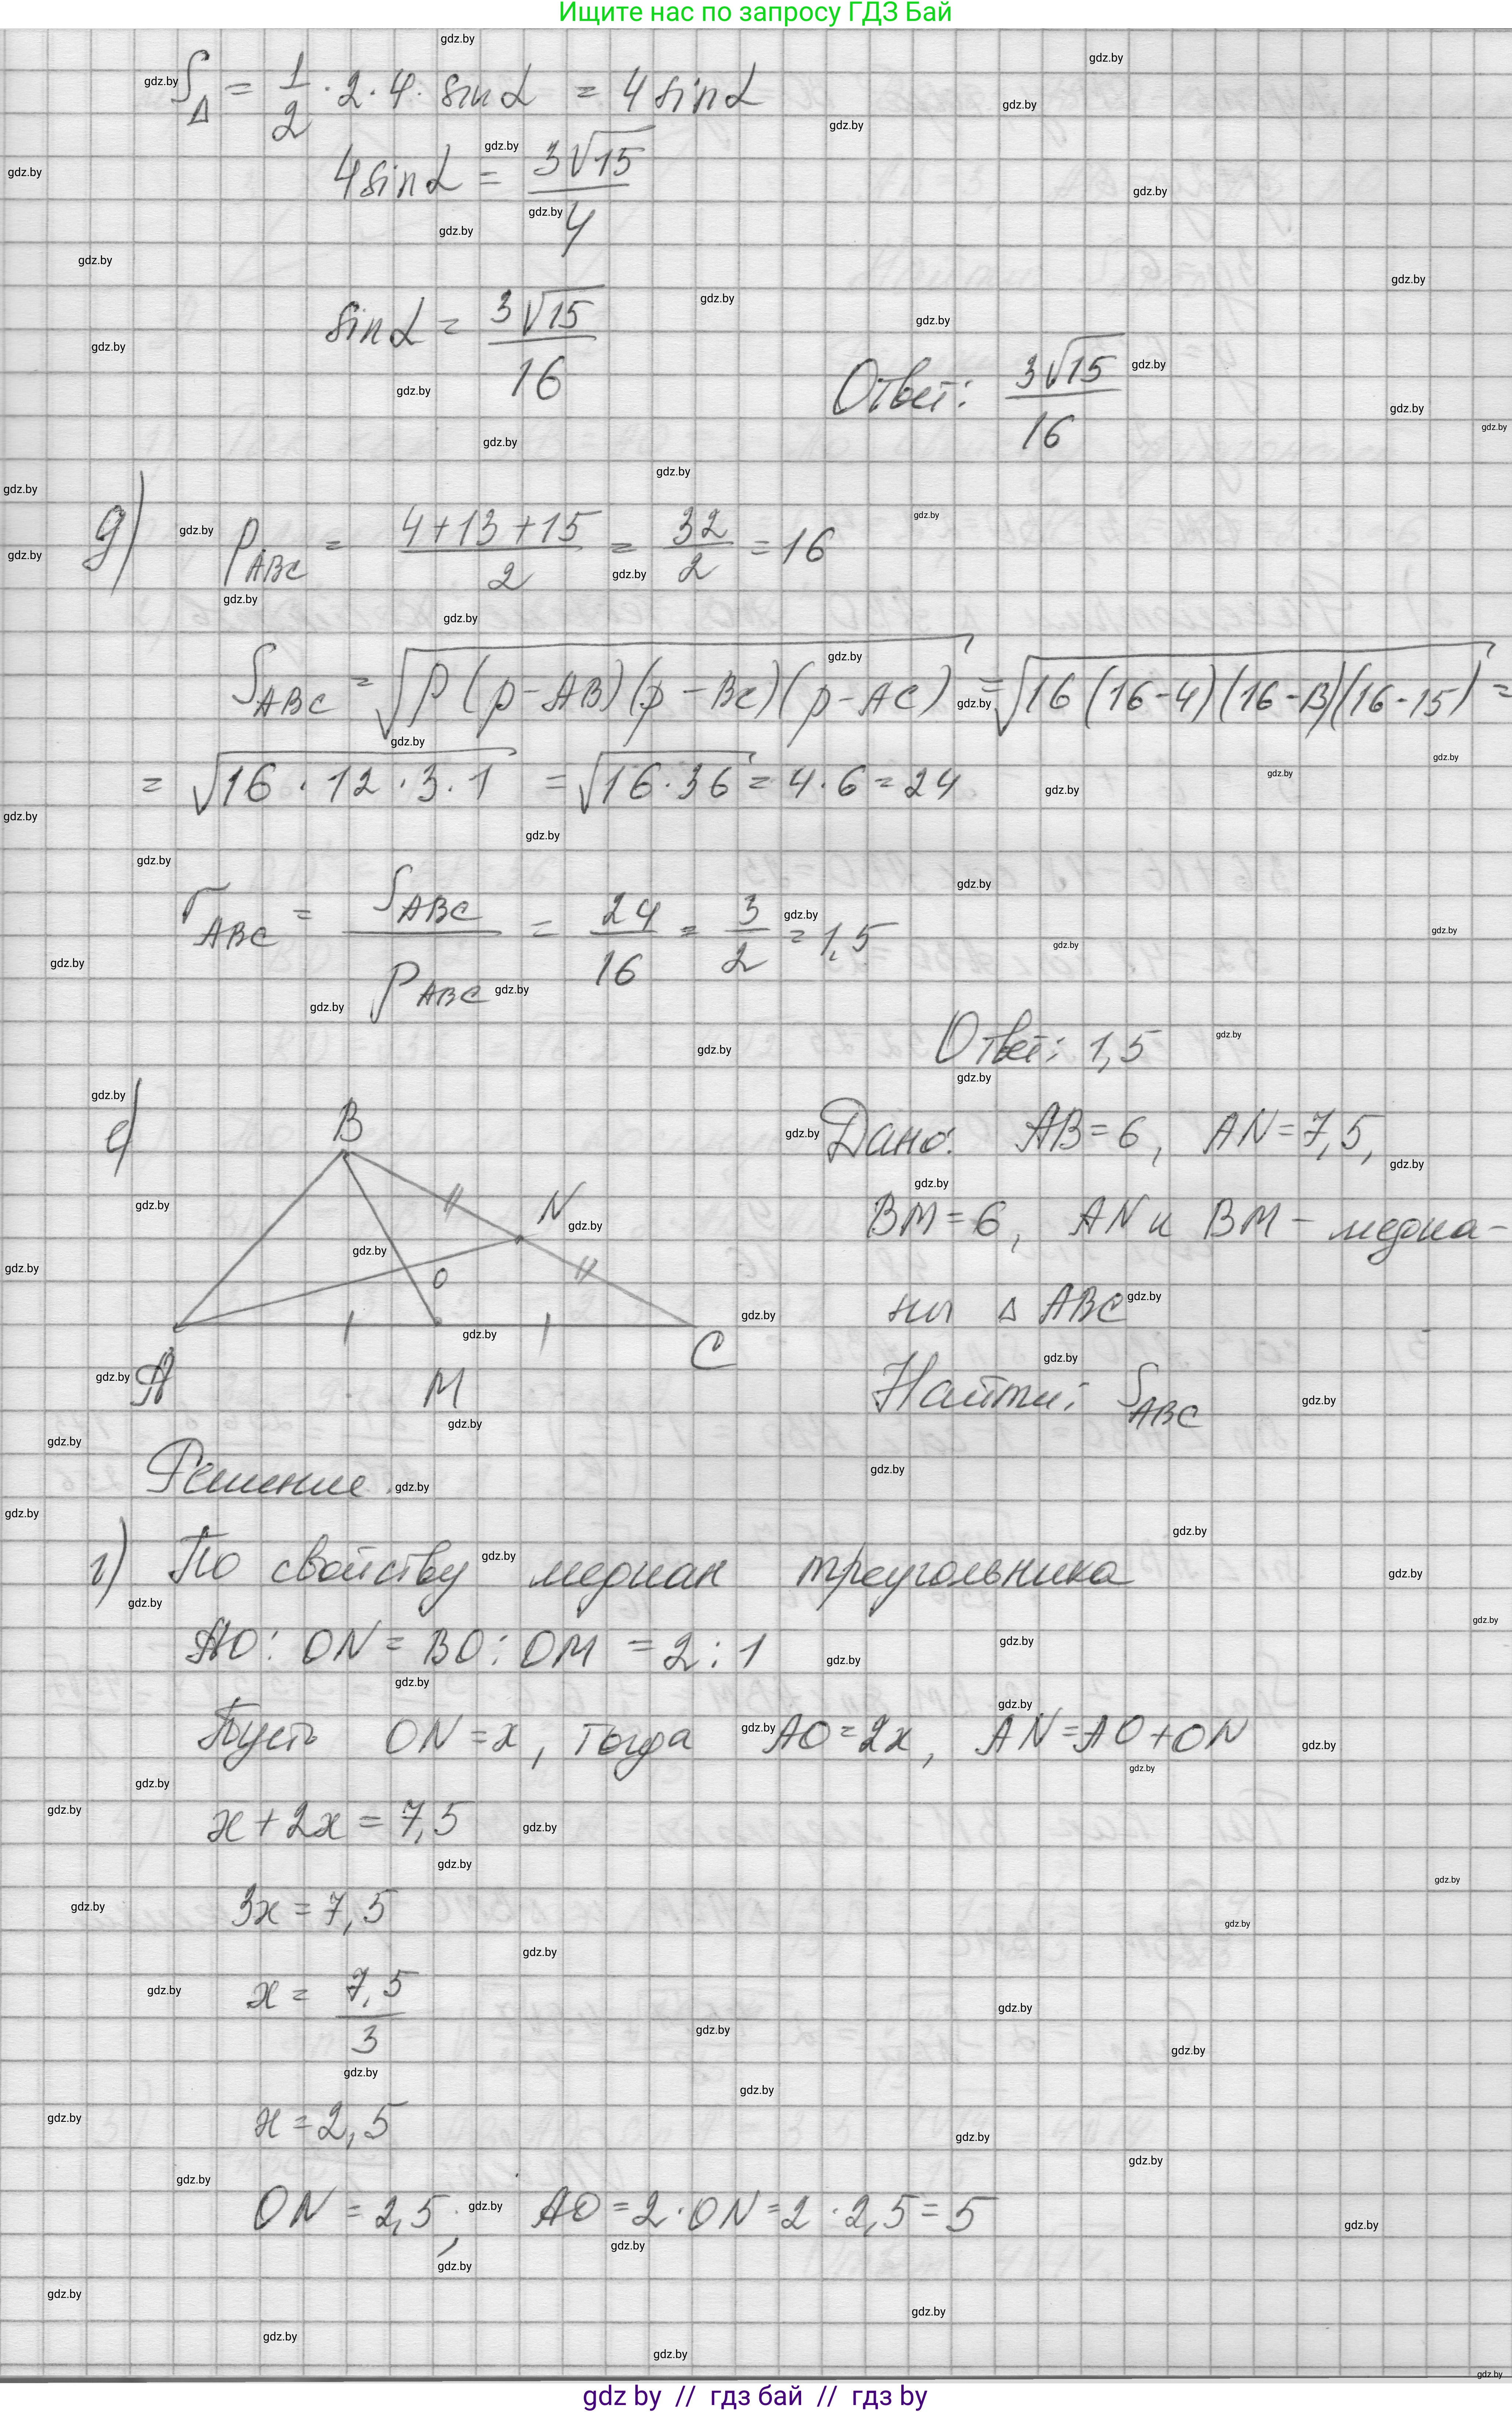 Ищите нас по запросу ГДЗ Бай
S△ = 1/2 · 2 · 4 · sin α = 4 sin α
4 sin α = 3√15/4
sin α = 3√15/16
Ответ: 3√15/16
д) p_ABC = (4+13+15)/2 = 32/2 = 16
S_ABC = √(p(p-AB)(p-BC)(p-AC)) = √(16(16-4)(16-13)(16-15)) =
= √(16·12·3·1) = √(16·36) = 4·6 = 24
r_ABC = S_ABC/p_ABC = 24/16 = 3/2 = 1,5
Ответ: 1,5
е)
B
N
O
A
M
C
Дано: AB=6, AN=7,5,
BM=6, AN и BM – медиа-
ны △ ABC
Найти: S_ABC
Решение.
1) По свойству медиан треугольника
AO : ON = BO : OM = 2 : 1
Пусть ON = x, тогда AO = 2x, AN = AO + ON
x + 2x = 7,5
3x = 7,5
x = 7,5/3
x = 2,5
ON = 2,5; AO = 2·ON = 2·2,5 = 5
gdz by // гдз бай // гдз by
gdz.by